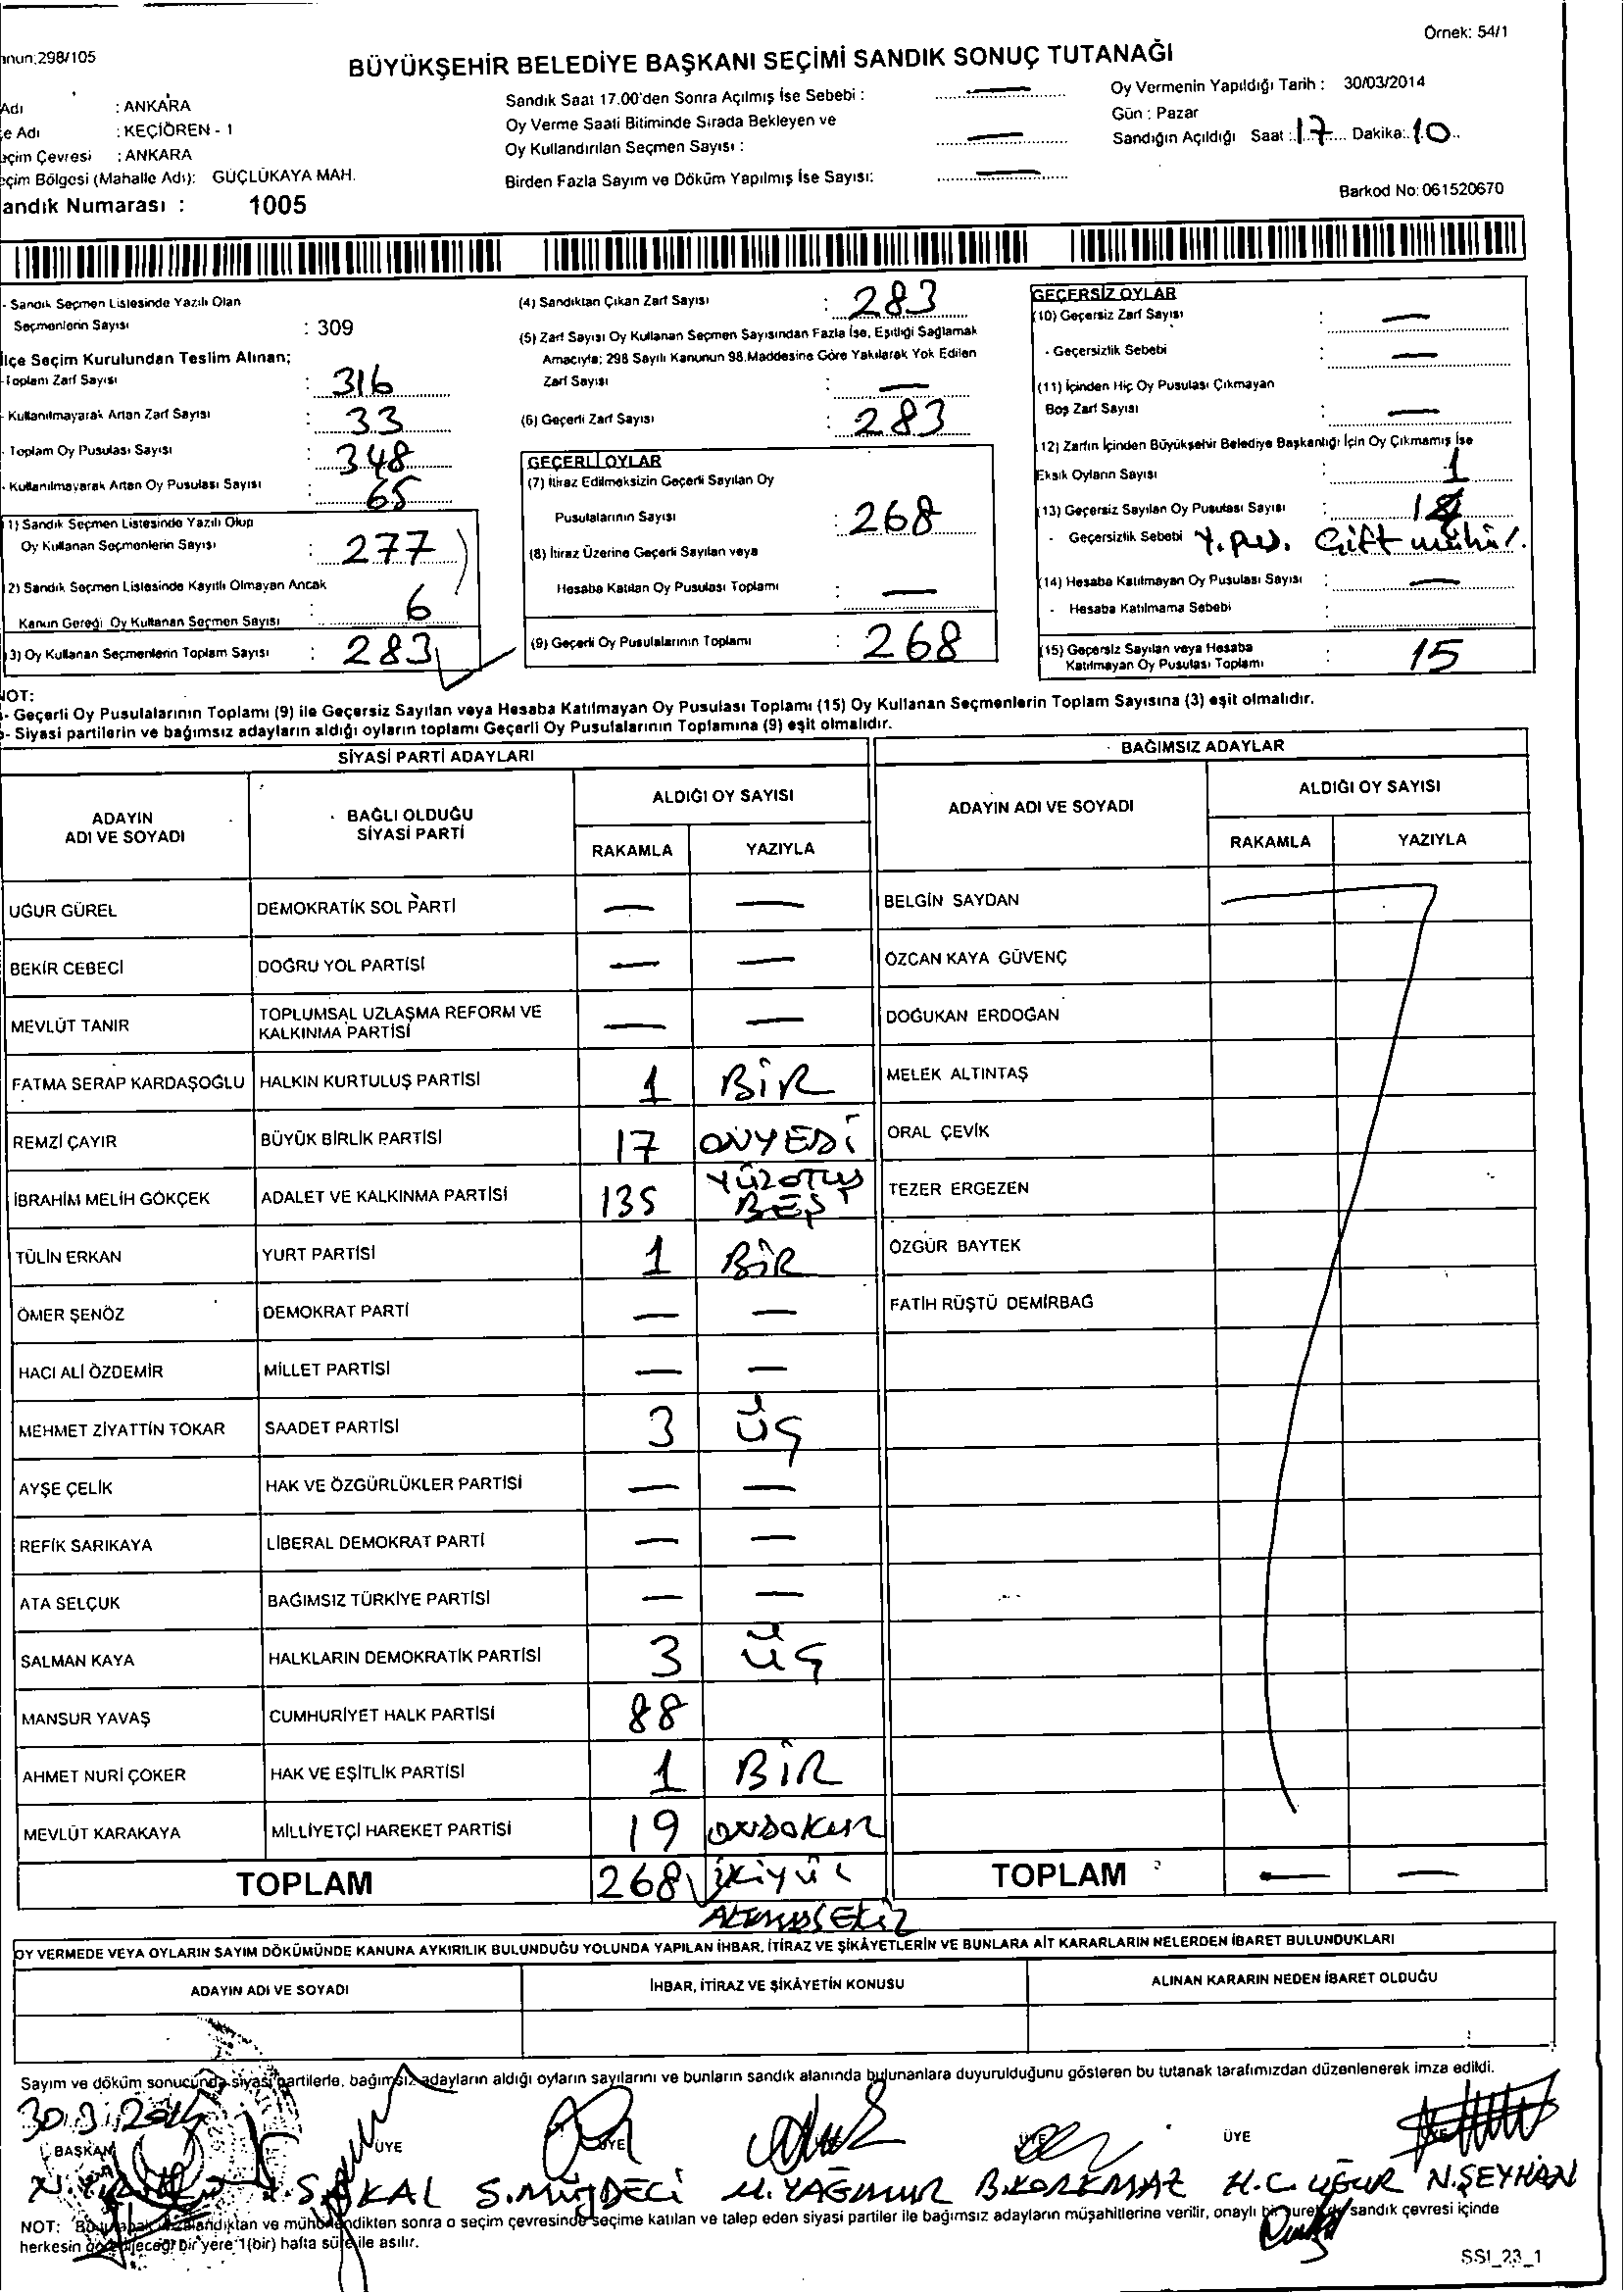 Örnek: 54/1
anun:298/105
BÜYÜKŞEHİR BELEDİYE BAŞKANI SEÇİMİ SANDIK SONUÇ TUTANAĞI
Adı : ANKARA
Sandık Saat 17.00'den Sonra Açılmış İse Sebebi : —
Oy Vermenin Yapıldığı Tarih : 30/03/2014
çe Adı : KEÇİÖREN - 1
Oy Verme Saati Bitiminde Sırada Bekleyen ve
Oy Kullandırılan Seçmen Sayısı : —
Gün : Pazar
Sandığın Açıldığı Saat : 17 Dakika: 10
eçim Çevresi : ANKARA
eçim Bölgesi (Mahalle Adı): GÜÇLÜKAYA MAH.
Birden Fazla Sayım ve Döküm Yapılmış İse Sayısı: —
andık Numarası : 1005
Barkod No: 061520670
- Sandık Seçmen Listesinde Yazılı Olan
Seçmenlerin Sayısı : 309
İlçe Seçim Kurulundan Teslim Alınan;
-Toplam Zarf Sayısı : 316
- Kullanılmayarak Artan Zarf Sayısı : 33
- Toplam Oy Pusulası Sayısı : 348
- Kullanılmayarak Artan Oy Pusulası Sayısı : 65
1) Sandık Seçmen Listesinde Yazılı Olup
Oy Kullanan Seçmenlerin Sayısı : 277
2) Sandık Seçmen Listesinde Kayıtlı Olmayan Ancak
Kanun Gereği Oy Kullanan Seçmen Sayısı : 6
3) Oy Kullanan Seçmenlerin Toplam Sayısı : 283
(4) Sandıktan Çıkan Zarf Sayısı : 283
(5) Zarf Sayısı Oy Kullanan Seçmen Sayısından Fazla İse, Eşitliği Sağlamak
Amacıyla; 298 Sayılı Kanunun 98.Maddesine Göre Yakılarak Yok Edilen
Zarf Sayısı : —
(6) Geçerli Zarf Sayısı : 283
GEÇERLİ OYLAR
(7) İtiraz Edilmeksizin Geçerli Sayılan Oy
Pusulalarının Sayısı : 268
(8) İtiraz Üzerine Geçerli Sayılan veya
Hesaba Katılan Oy Pusulası Toplamı : —
(9) Geçerli Oy Pusulalarının Toplamı : 268
GEÇERSİZ OYLAR
(10) Geçersiz Zarf Sayısı : —
- Geçersizlik Sebebi : —
(11) İçinden Hiç Oy Pusulası Çıkmayan
Boş Zarf Sayısı : —
12) Zarfın İçinden Büyükşehir Belediye Başkanlığı İçin Oy Çıkmamış İse
Eksik Oyların Sayısı : 1
(13) Geçersiz Sayılan Oy Pusulası Sayısı : 14
- Geçersizlik Sebebi Çift mühür.
(14) Hesaba Katılmayan Oy Pusulası Sayısı : —
- Hesaba Katılmama Sebebi :
(15) Geçersiz Sayılan veya Hesaba
Katılmayan Oy Pusulası Toplamı : 15
NOT:
- Geçerli Oy Pusulalarının Toplamı (9) ile Geçersiz Sayılan veya Hesaba Katılmayan Oy Pusulası Toplamı (15) Oy Kullanan Seçmenlerin Toplam Sayısına (3) eşit olmalıdır.
- Siyasi partilerin ve bağımsız adayların aldığı oyların toplamı Geçerli Oy Pusulalarının Toplamına (9) eşit olmalıdır.
SİYASİ PARTİ ADAYLARI
BAĞIMSIZ ADAYLAR
ADAYIN ADI VE SOYADI
BAĞLI OLDUĞU SİYASİ PARTİ
ALDIĞI OY SAYISI
RAKAMLA YAZIYLA
ADAYIN ADI VE SOYADI
ALDIĞI OY SAYISI
RAKAMLA YAZIYLA
UĞUR GÜREL DEMOKRATİK SOL PARTİ — — BELGİN SAYDAN
BEKİR CEBECİ DOĞRU YOL PARTİSİ — — ÖZCAN KAYA GÜVENÇ
MEVLÜT TANIR TOPLUMSAL UZLAŞMA REFORM VE KALKINMA PARTİSİ — — DOĞUKAN ERDOĞAN
FATMA SERAP KARDAŞOĞLU HALKIN KURTULUŞ PARTİSİ 1 BİR MELEK ALTINTAŞ
REMZİ ÇAYIR BÜYÜK BİRLİK PARTİSİ 17 ONYEDİ ORAL ÇEVİK
İBRAHİM MELİH GÖKÇEK ADALET VE KALKINMA PARTİSİ 135 YÜZOTUZ BEŞ TEZER ERGEZEN
TÜLİN ERKAN YURT PARTİSİ 1 BİR ÖZGÜR BAYTEK
ÖMER ŞENÖZ DEMOKRAT PARTİ — — FATİH RÜŞTÜ DEMİRBAĞ
HACI ALİ ÖZDEMİR MİLLET PARTİSİ — —
MEHMET ZİYATTİN TOKAR SAADET PARTİSİ 3 ÜÇ
AYŞE ÇELİK HAK VE ÖZGÜRLÜKLER PARTİSİ — —
REFİK SARIKAYA LİBERAL DEMOKRAT PARTİ — —
ATA SELÇUK BAĞIMSIZ TÜRKİYE PARTİSİ — —
SALMAN KAYA HALKLARIN DEMOKRATİK PARTİSİ 3 ÜÇ
MANSUR YAVAŞ CUMHURİYET HALK PARTİSİ 88
AHMET NURİ ÇOKER HAK VE EŞİTLİK PARTİSİ 1 BİR
MEVLÜT KARAKAYA MİLLİYETÇİ HAREKET PARTİSİ 19 ONDOKUZ
TOPLAM 268 İKİYÜZ ALTMIŞSEKİZ TOPLAM — —
OY VERMEDE VEYA OYLARIN SAYIM DÖKÜMÜNDE KANUNA AYKIRILIK BULUNDUĞU YOLUNDA YAPILAN İHBAR, İTİRAZ VE ŞİKÂYETLERİN VE BUNLARA AİT KARARLARIN NELERDEN İBARET BULUNDUKLARI
ADAYIN ADI VE SOYADI İHBAR, İTİRAZ VE ŞİKÂYETİN KONUSU ALINAN KARARIN NEDEN İBARET OLDUĞU
Sayım ve döküm sonucunda siyasi partilerle, bağımsız adayların aldığı oyların sayılarını ve bunların sandık alanında bulunanlara duyurulduğunu gösteren bu tutanak tarafımızdan düzenlenerek imza edildi.
30.3.2014
BAŞKAN ÜYE ÜYE ÜYE ÜYE
S.MÜJDECİ M.YAĞMUR B.KORKMAZ H.C.UĞUR N.ŞEYHAN
NOT: Bu tutanak imzalandıktan ve mühürlendikten sonra o seçim çevresinde seçime katılan ve talep eden siyasi partiler ile bağımsız adayların müşahitlerine verilir, onaylı bir sureti de sandık çevresi içinde
herkesin görebileceği bir yere 1(bir) hafta süre ile asılır.
SSI_23_1